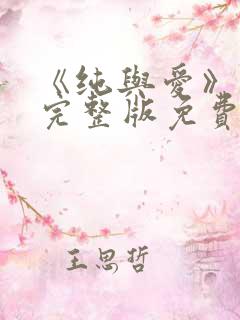 《纯與愛》
完整版免費
王思哲